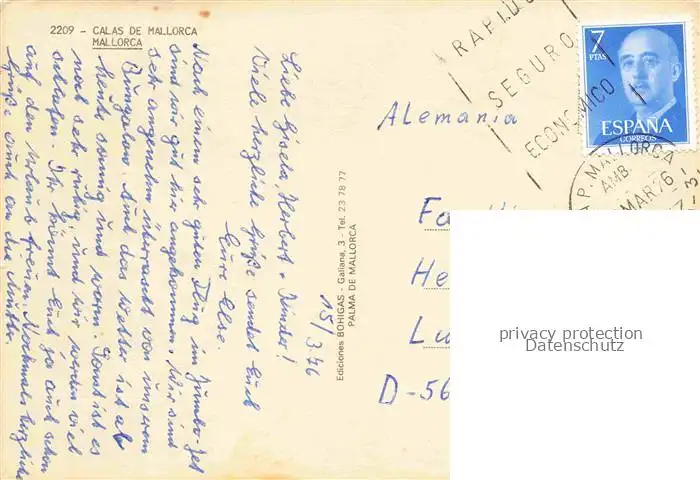 2209 - CALAS DE MALLORCA
MALLORCA
15/3.76
Liebe Gisela, Herbert + Kinder!
Viele herzliche Grüße sendet Euch
Eure Else.
Nach einem sehr guten Flug im Jumbo-Jet
sind wir gut hier angekommen. Wir sind
sehr angenehm überrascht von unserem
Bungalow. Auch das Wetter ist ab
heute sonnig und warm. Sonst ist es
noch sehr ruhig und wir werden viel
schlafen. Ihr könnt Euch ja auch schon
auf den Urlaub freuen. Nochmals herzliche
Grüße auch an die Mutter.
Ediciones BOHIGAS - Galiana, 3 - Tel. 23 78 77
PALMA DE MALLORCA
RAPIDO
SEGURO
ECONOMICO
7
PTAS
ESPAÑA
CORREOS
P. MALLORCA
AMB.
MAR 76
Alemania
Fa
He
Lu
D-56
privacy protection
Datenschutz